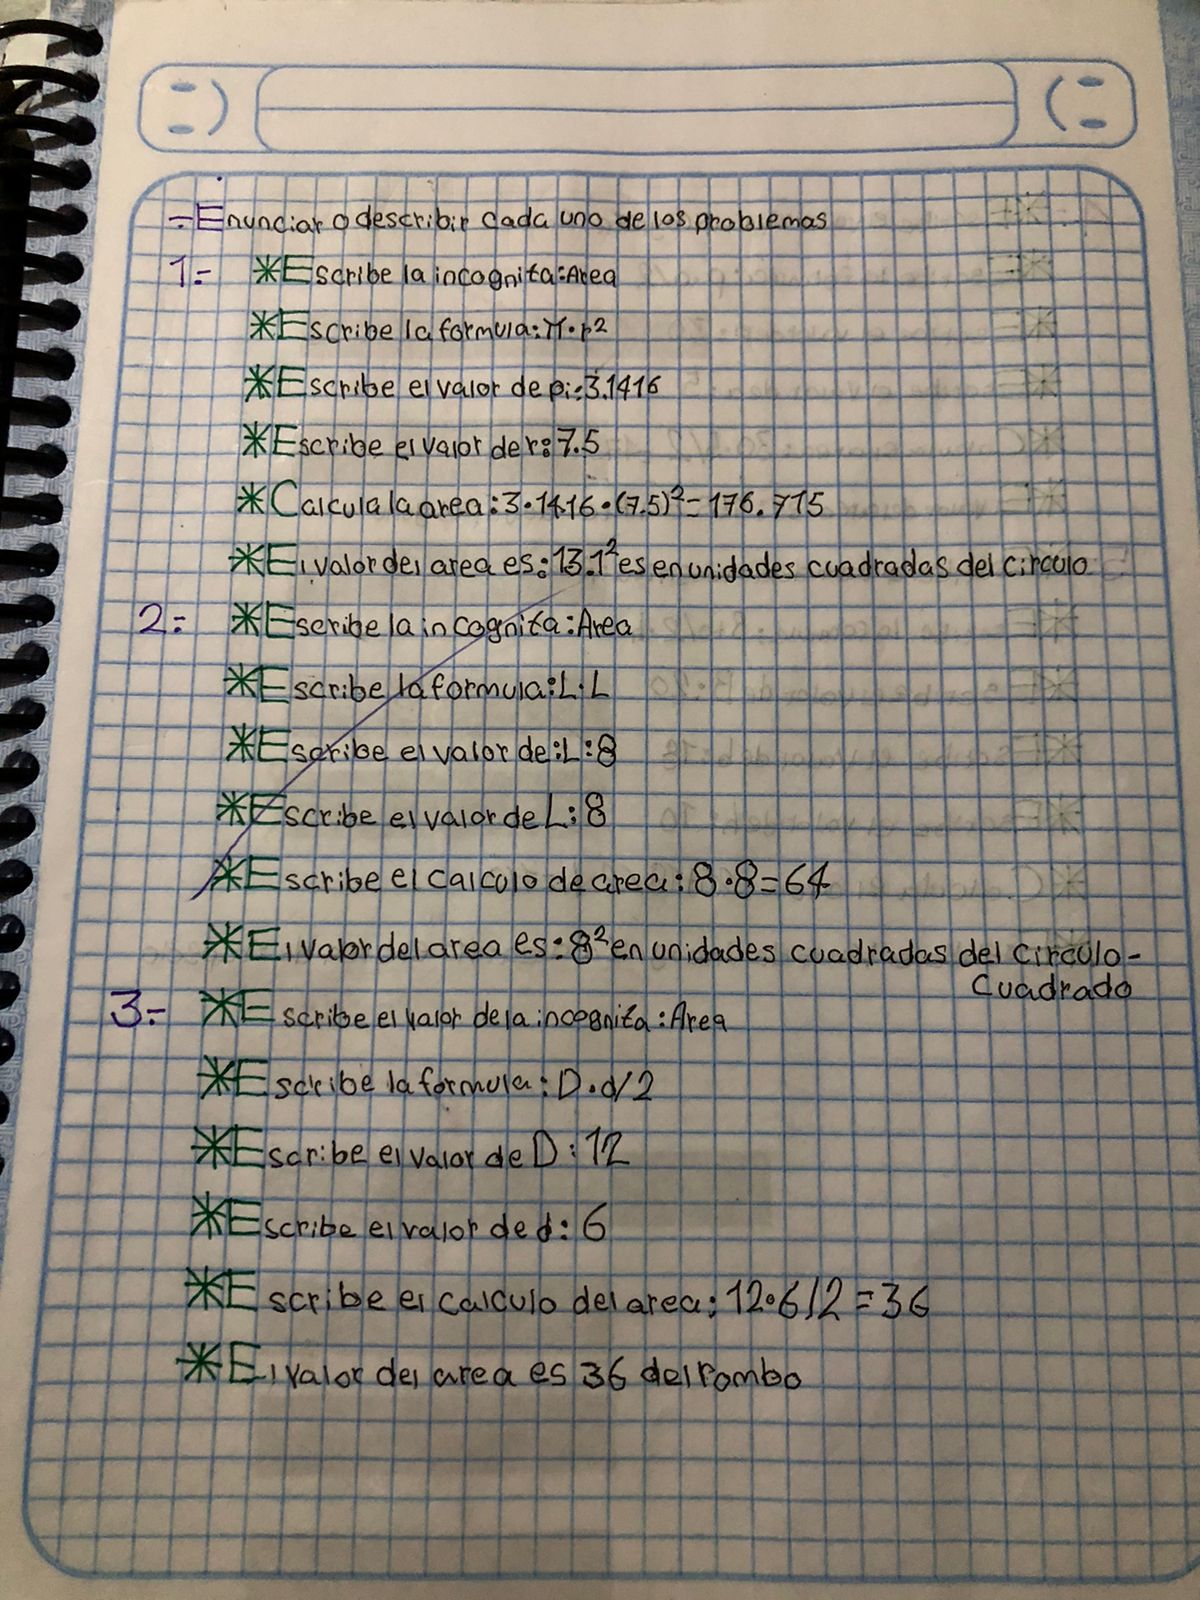 -Enunciar o describir cada uno de los problemas
1- *Escribe la incognita:Area
*Escribe la formula:π·r²
*Escribe el valor de pi:3.1416
*Escribe el valor de r:7.5
*Calcula la area:3.1416·(7.5)²=176.715
*El valor del area es:13.1² es en unidades cuadradas del circulo
2- *Escribe la incognita:Area
*Escribe la formula:L·L
*Escribe el valor de:L:8
*Escribe el valor de L:8
*Escribe el calculo de area:8·8=64
*El valor del area es:8² en unidades cuadradas del circulo-
Cuadrado
3- *Escribe el valor de la incognita:Area
*Escribe la formula:D·d/2
*Escribe el valor de D:12
*Escribe el valor de d:6
*Escribe el calculo del area:12·6/2=36
*El valor del area es 36 del rombo